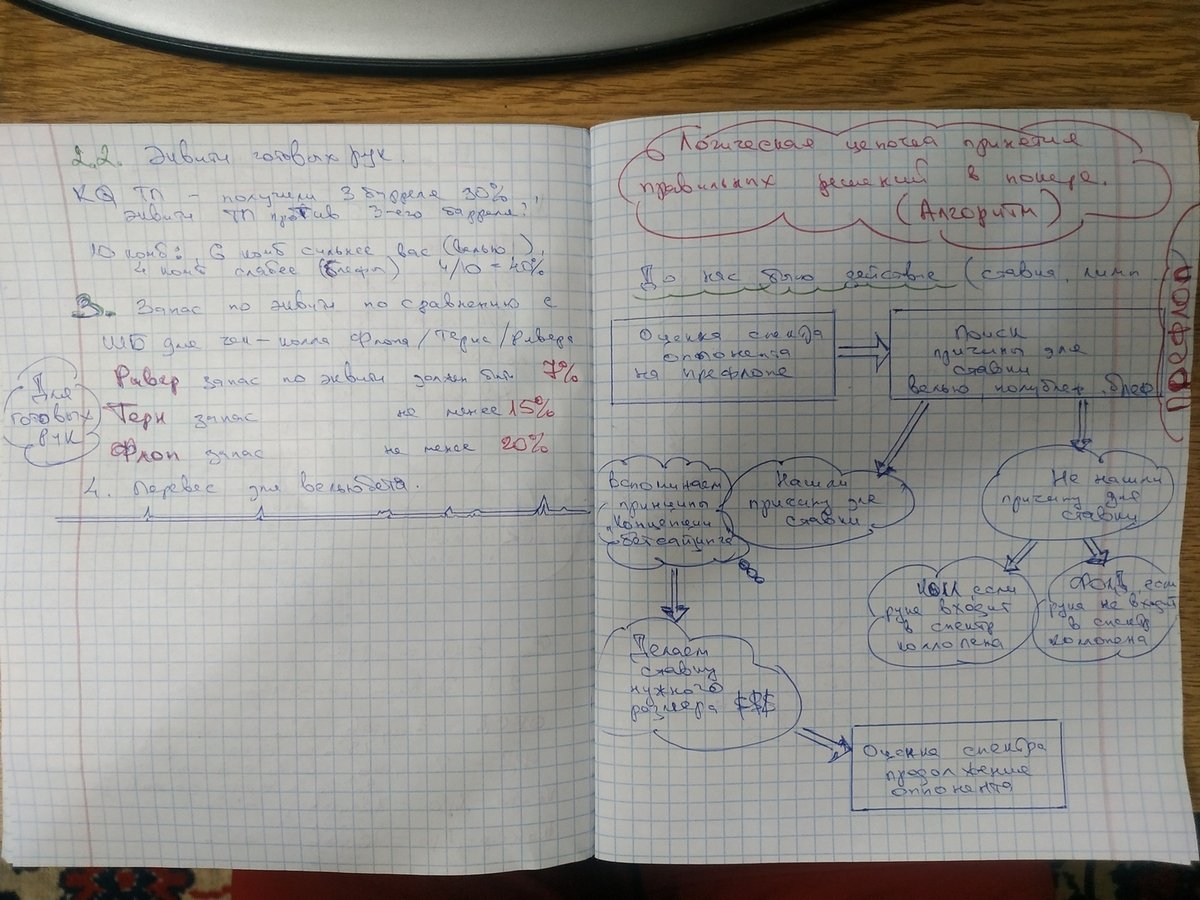 2.2. Эквити готовых рук.
KQ ТП - получили 3 барреля 30%,
эквити ТП против 3-его барреля?
10 комб: 6 комб сильнее вас (велью),
4 комб слабее (блефы) 4/10 = 40%
3. Запас по эквити по сравнению с
ШБ для чек-колла Флопа/Терна/Ривера
Для готовых рук
Ривер запас по эквити должен быть 7%
Терн запас не менее 15%
Флоп запас не менее 20%
4. Перевес для вельюбета.
Логическая цепочка принятия
правильных решений в покере.
(Алгоритм)
Префлоп
До нас было действие (ставка, лимп
Оценка спектра
оппонента
на префлопе
Поиск
причины для
ставки
велью полублеф, блеф
Вспоминаем
принципы
концепции
бетсайзинга
Нашли
причину для
ставки
Не нашли
причину для
ставки
КОЛЛ если
рука входит
в спектр
коллопена
ФОЛД, если
рука не входит
в спектр
коллопена
Делаем
ставку
нужного
размера $$$
Оценка спектра
продолжения
оппонента